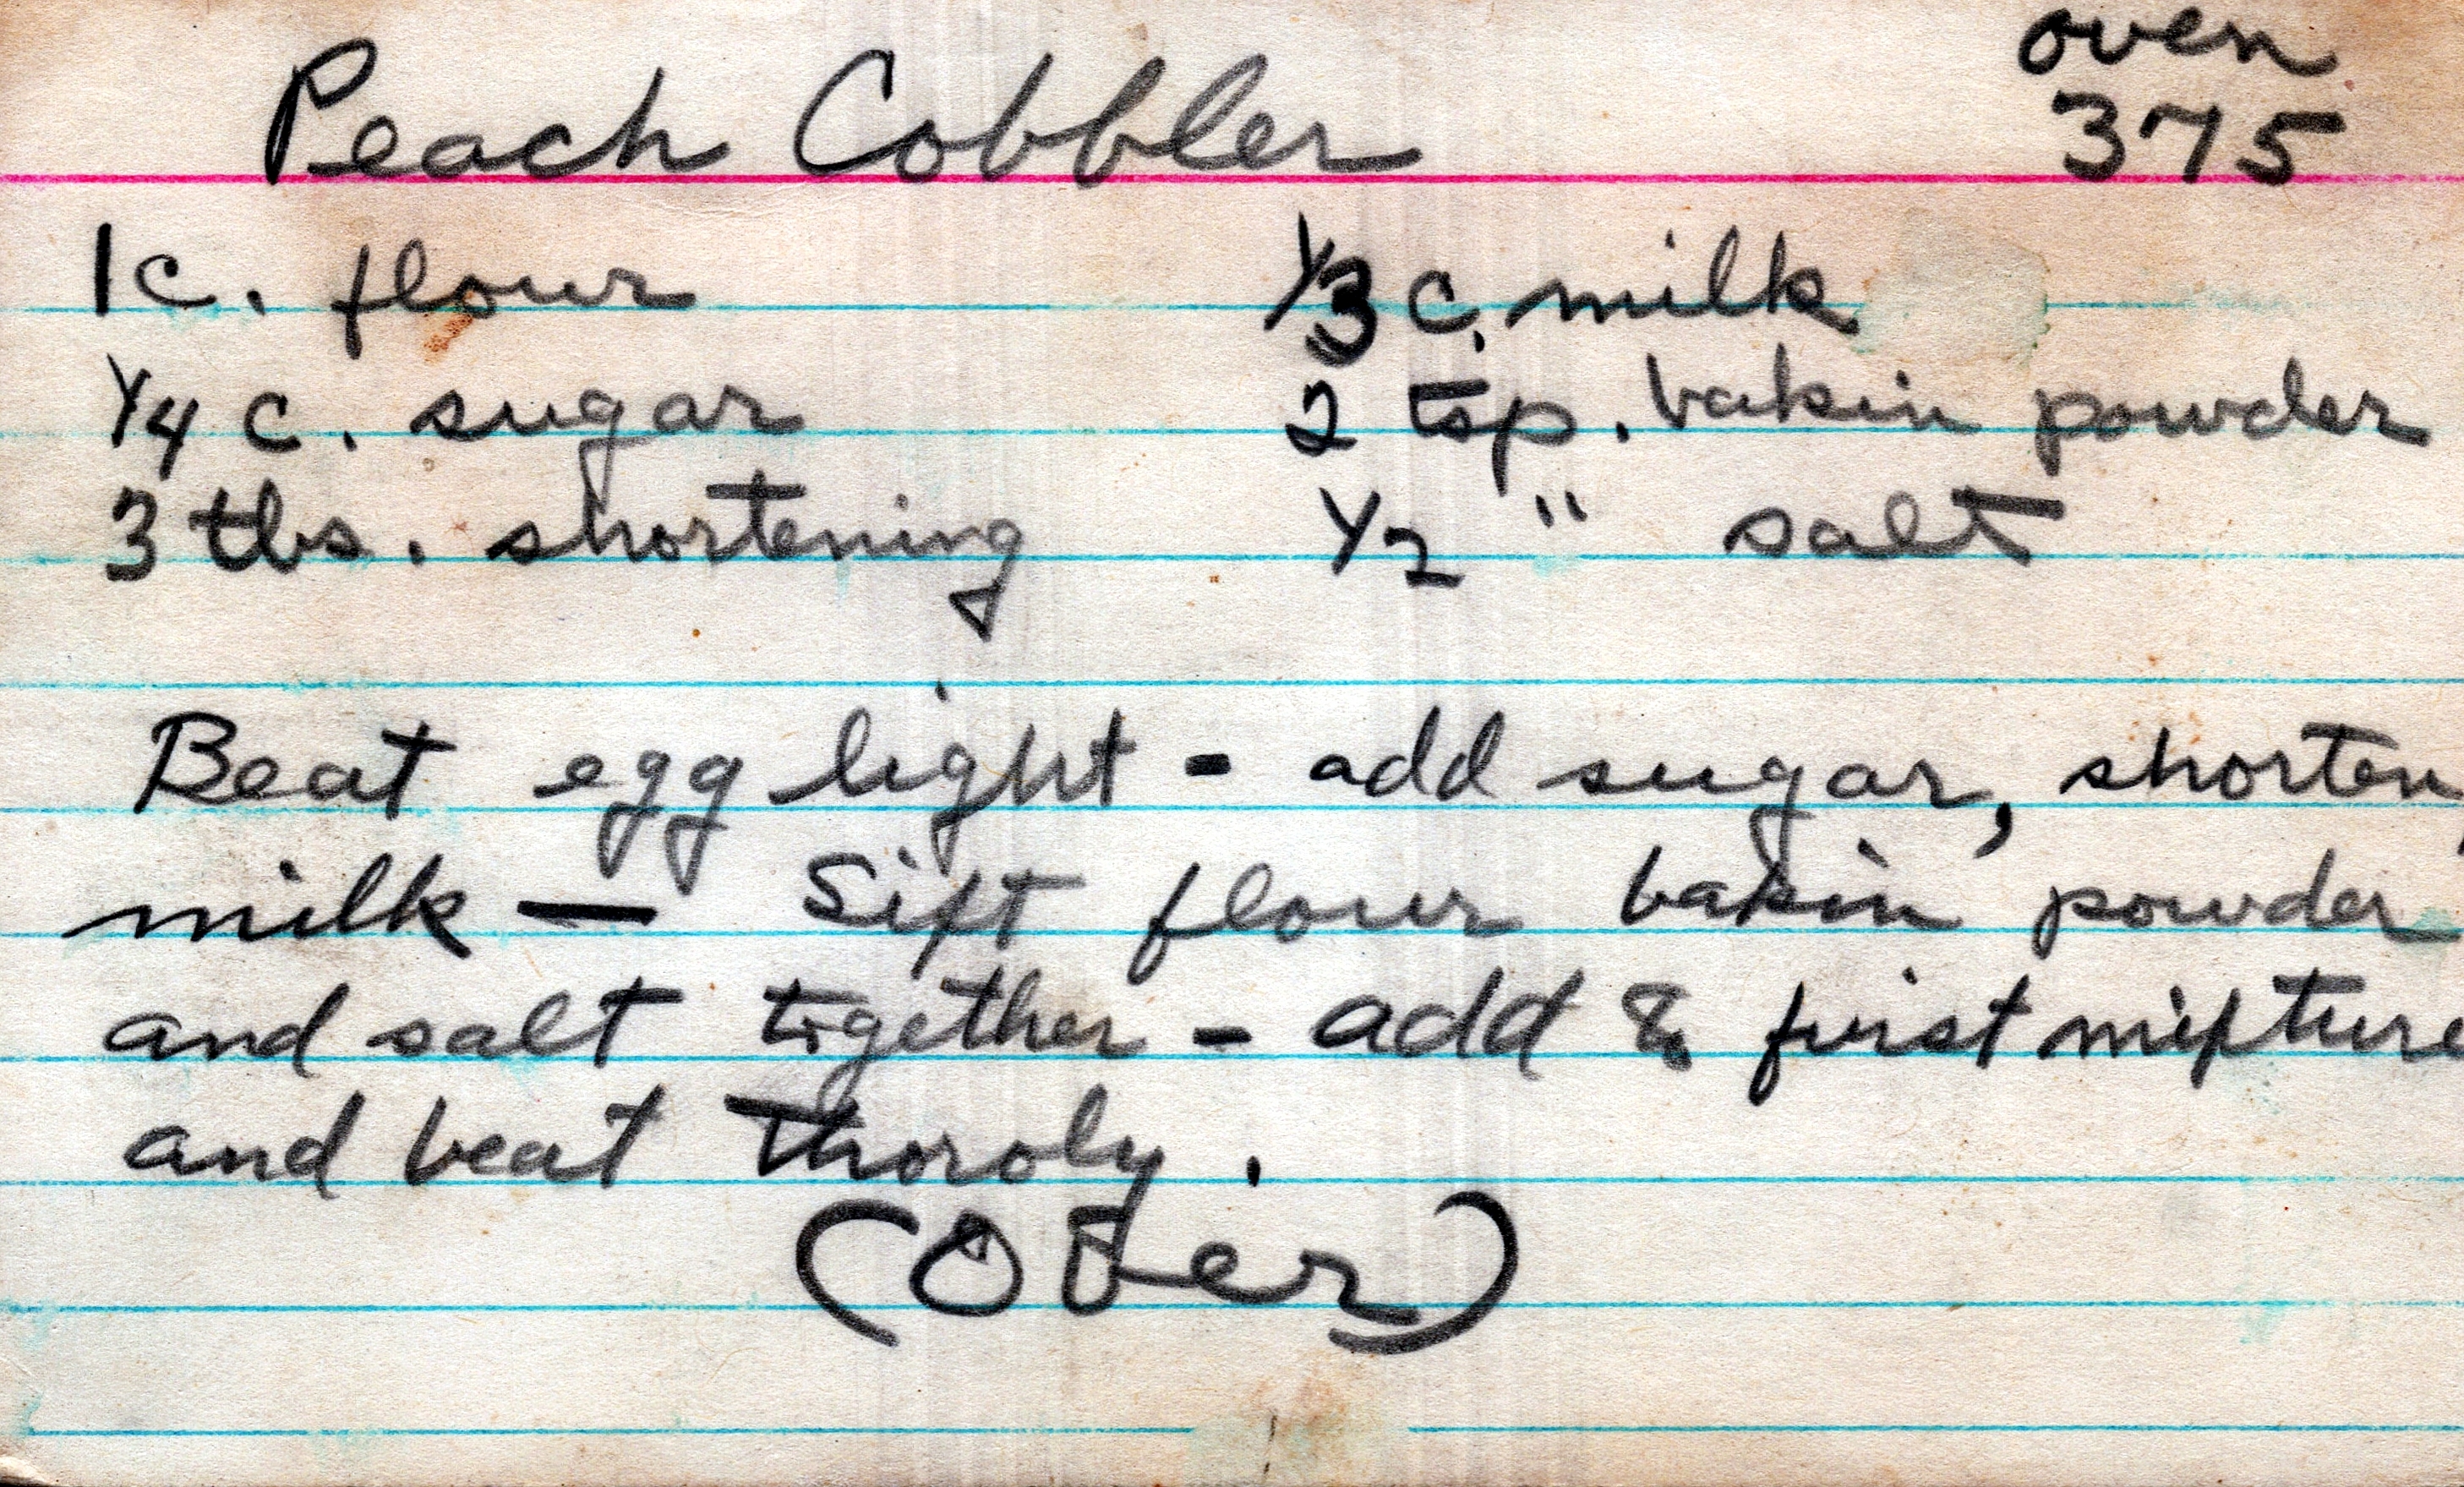 oven
Peach Cobbler 375
1c. flour 1/3 c. milk
1/4 c. sugar 2 tsp. bakin powder
3 tbs. shortening 1/2 " salt
Beat egg light - add sugar, shorten,
milk — Sift flour bakin powder
and salt together - add & first mixture
and beat thoroly.
(Over)